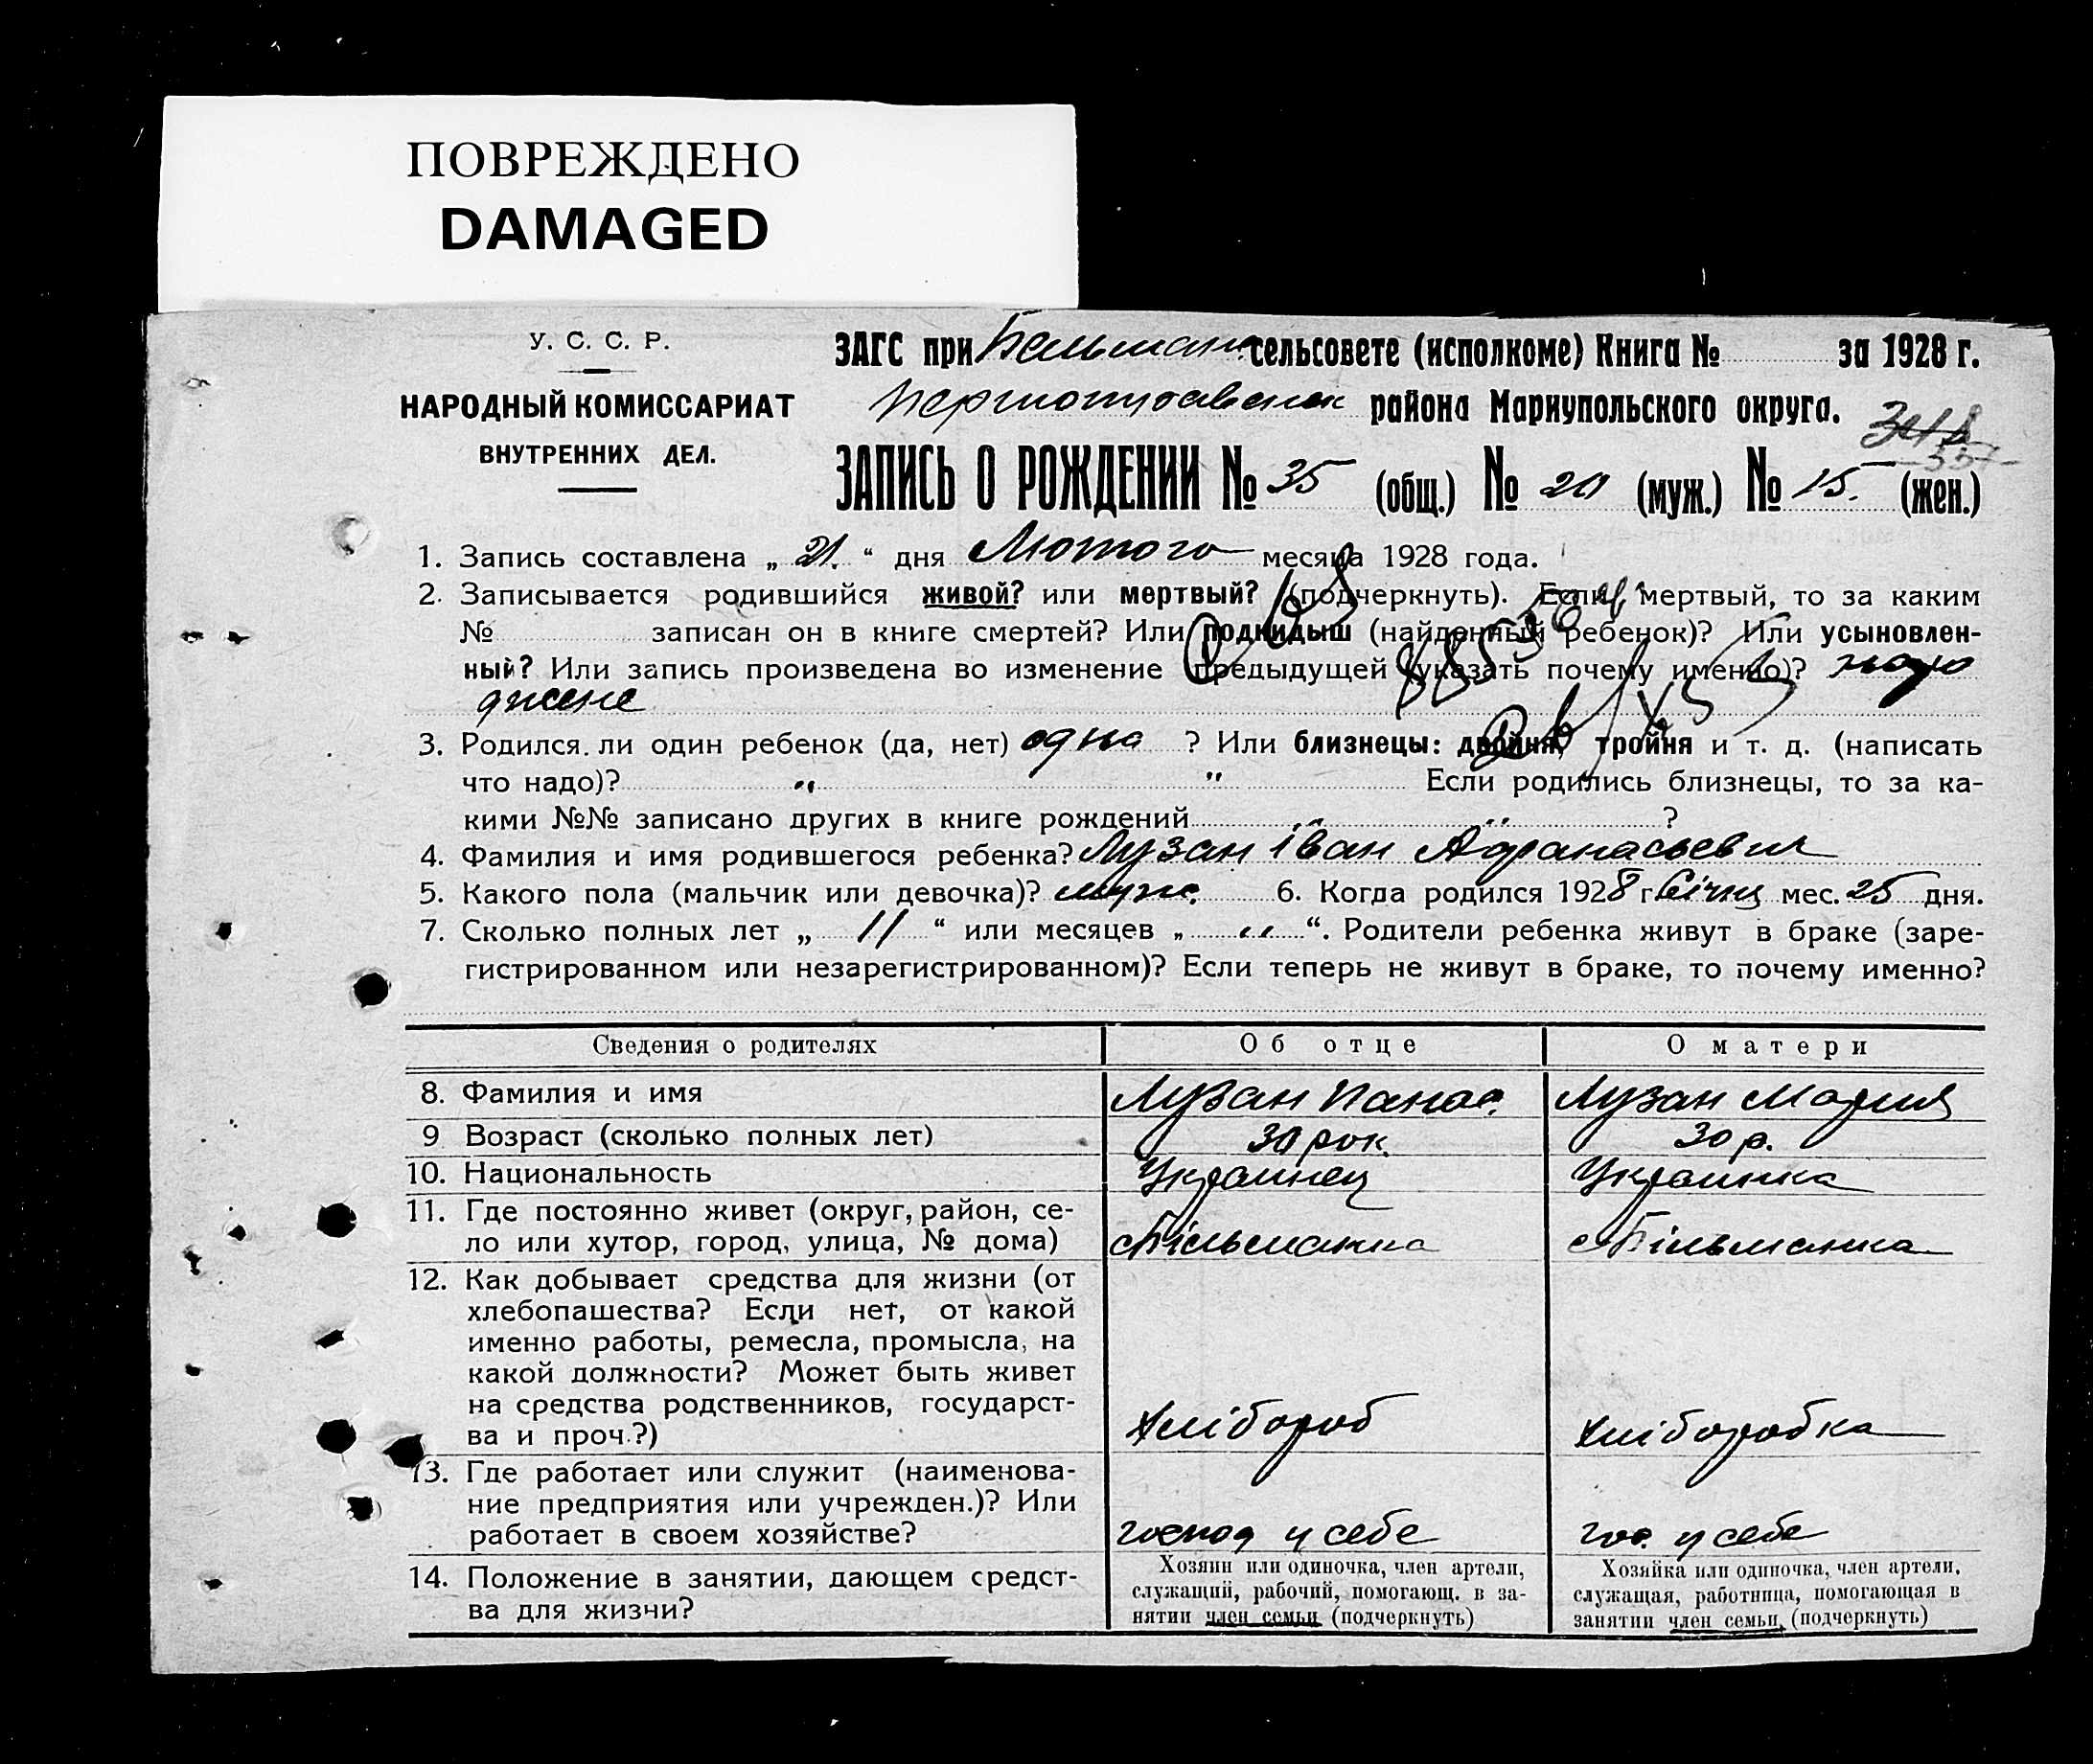 ПОВРЕЖДЕНО
DAMAGED
У. С. С. Р.
НАРОДНЫЙ КОМИССАРИАТ
ВНУТРЕННИХ ДЕЛ.
ЗАГС при Бельман. сельсовете (исполкоме) Книга № за 1928 г.
района Мариупольского округа.
ЗАПИСЬ О РОЖДЕНИИ № 35 (общ.) № 20 (муж.) № 15. (жен.)
1. Запись составлена „ 21. “ дня Лютого месяца 1928 года.
2. Записывается родившийся живой? или мертвый? (подчеркнуть). Если мертвый, то за каким
№ записан он в книге смертей? Или подкидыш (найденный ребенок)? Или усыновлен-
ный? Или запись произведена во изменение предыдущей (указать почему именно)?
джене
3. Родился ли один ребенок (да, нет) одна ? Или близнецы: двойня, тройня и т. д. (написать
что надо)? „ " Если родились близнецы, то за ка-
кими №№ записано других в книге рождений ?
4. Фамилия и имя родившегося ребенка? Лузан Іван Афанасьевич
5. Какого пола (мальчик или девочка)? муж. 6. Когда родился 1928 г. Січня мес. 25 дня.
7. Сколько полных лет „ 11 “ или месяцев „ „ “. Родители ребенка живут в браке (заре-
гистрированном или незарегистрированном)? Если теперь не живут в браке, то почему именно?
Сведения о родителях Об отце О матери
8. Фамилия и имя Лузан Панас. Лузан Мария
9 Возраст (сколько полных лет) 30 рок. 30 р.
10. Национальность Украинец Украинка
11. Где постоянно живет (округ, район, се-
ло или хутор, город, улица, № дома) с Більманка с Більманка
12. Как добывает средства для жизни (от
хлебопашества? Если нет, от какой
именно работы, ремесла, промысла, на
какой должности? Может быть живет
на средства родственников, государст-
ва и проч.?) Хлібороб Хліборобка
13. Где работает или служит (наименова-
ние предприятия или учрежден.)? Или
работает в своем хозяйстве? господ у себе гос. у себе
14. Положение в занятии, дающем средст-
ва для жизни?
Хозяин или одиночка, член артели,
служащий, рабочий, помогающ. в за-
нятии член семьи (подчеркнуть)
Хозяйка или одиночка, член артели,
служащая, работница, помогающая в
занятии член семьи, (подчеркнуть)